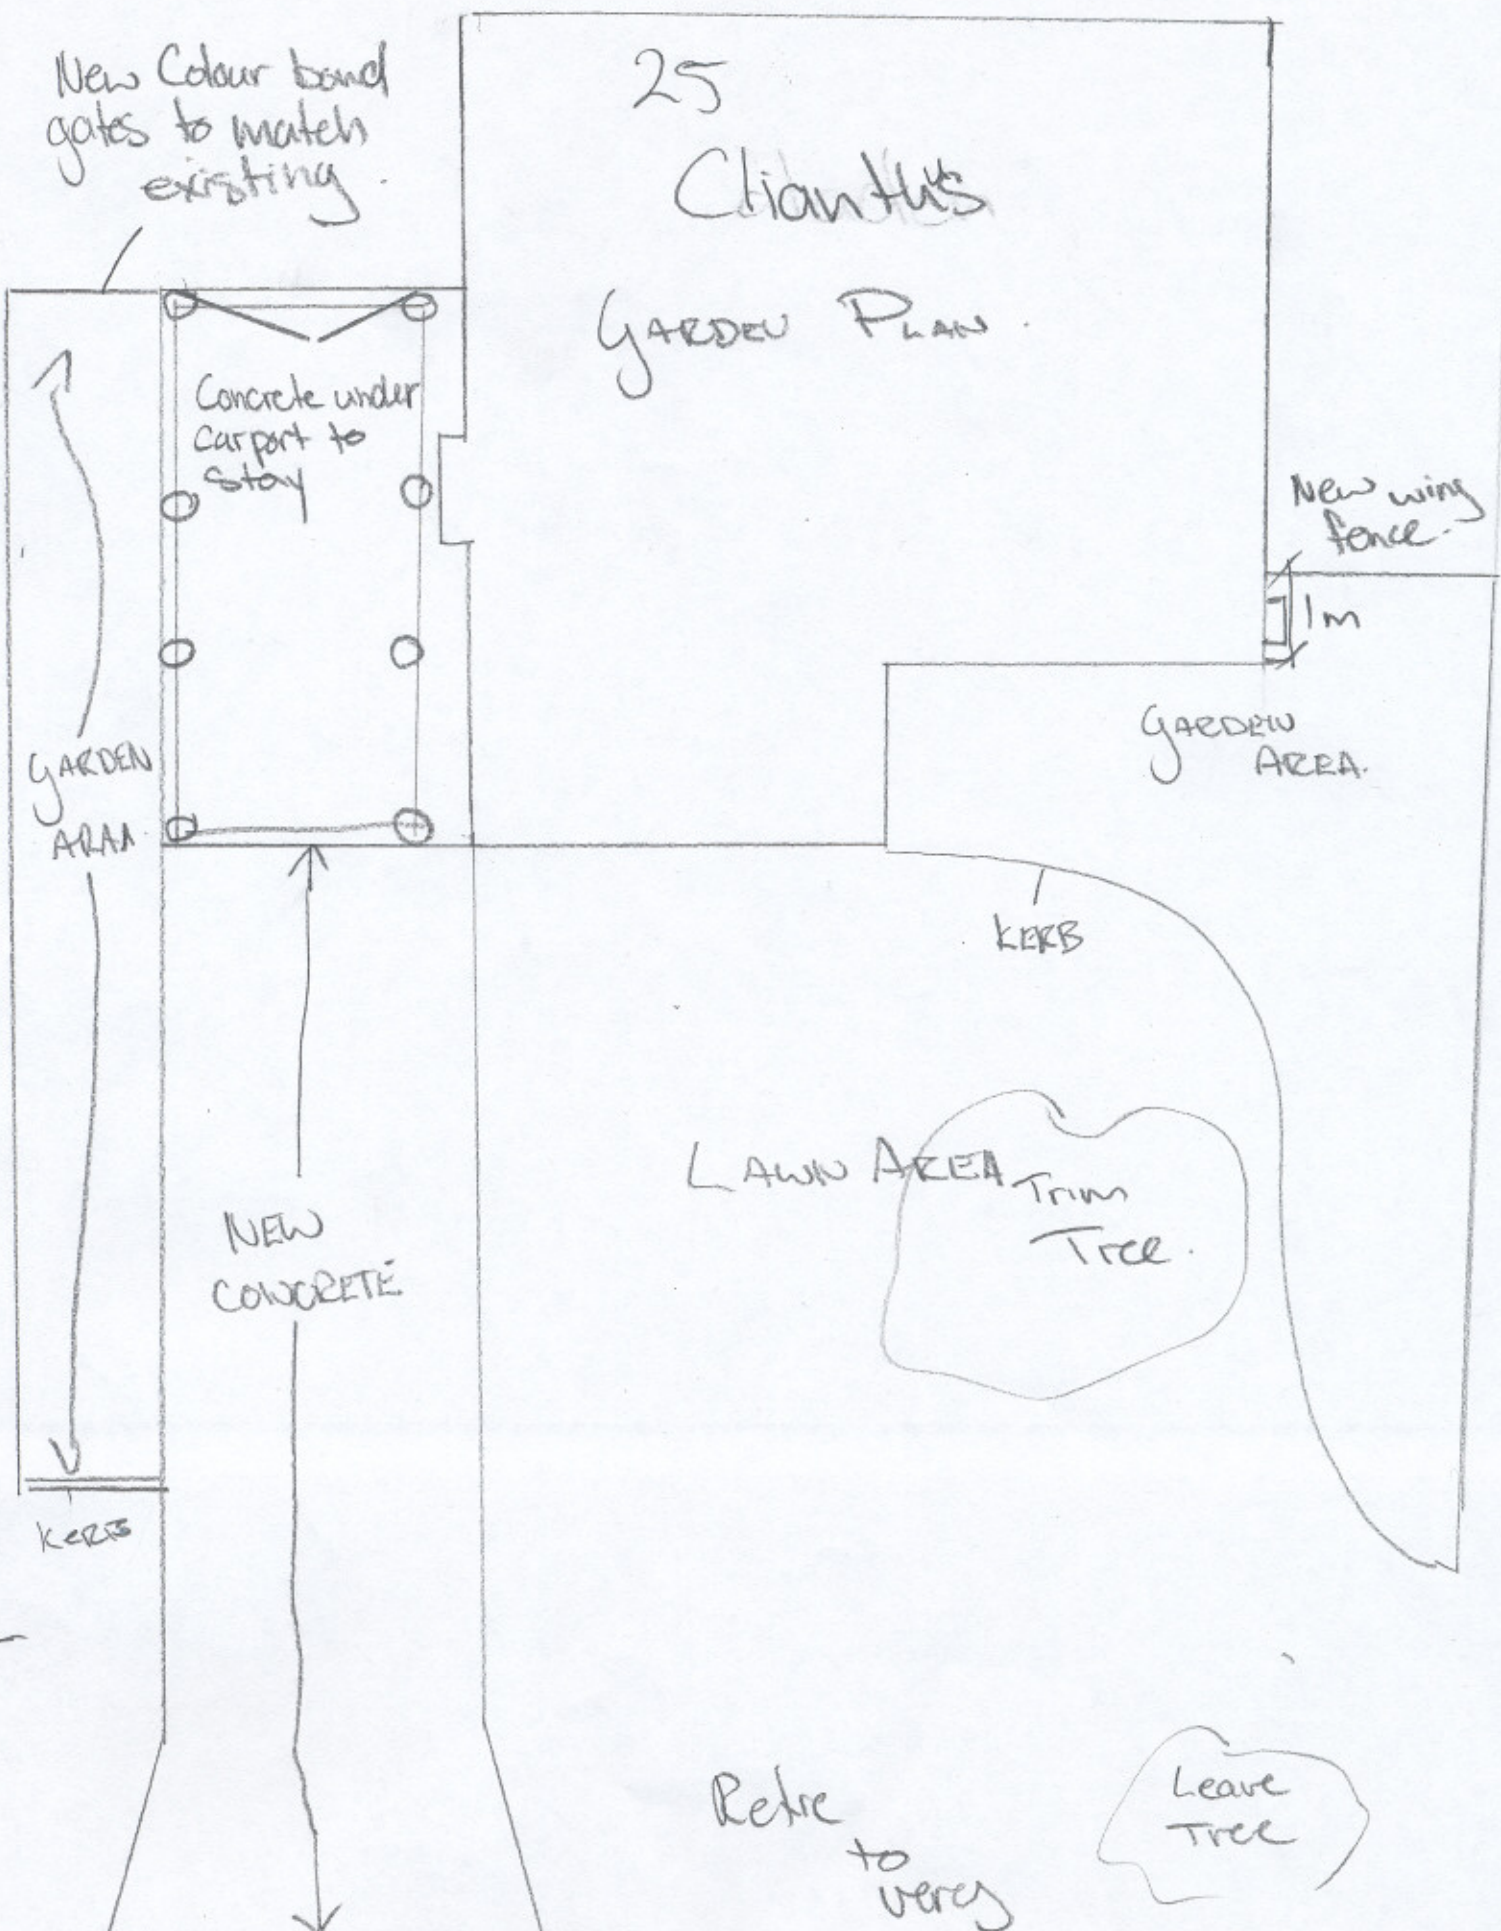 New Colour bond
gates to match
existing.
25
Clianthus
GARDEN PLAN.
Concrete under
carport to
stay
New wing
fence.
1m
GARDEN
AREA.
GARDEN
AREA
KERB
LAWN AREA
Trim
Tree.
NEW
CONCRETE
KERB
Leave
Tree
to